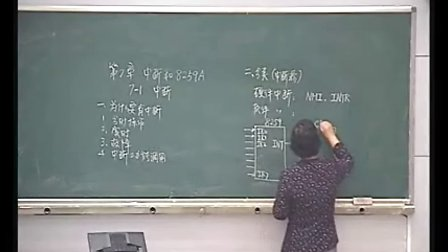 第7章 中断和8259A
7-1 中断
一. 为什么要有中断
1. 实时操作
2. 实时
3. 故障
4. 中断功能调用
二. 分类(中断源)
硬件中断: NMI, INTR
软件 〃 :
8259
IR0
IR1
INT
IR7